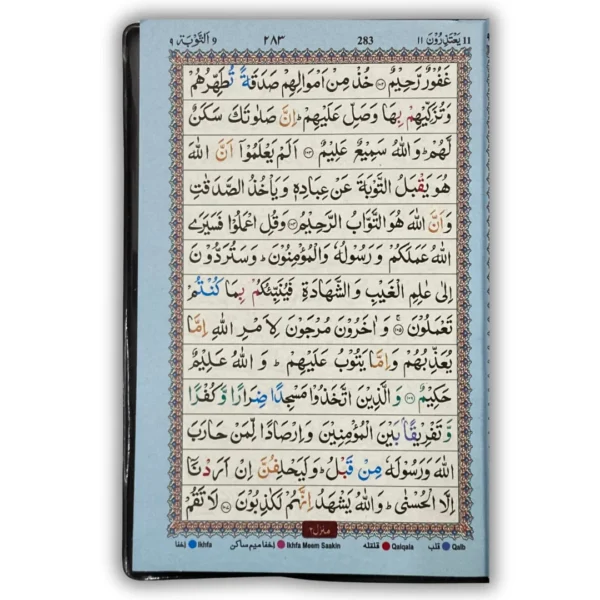 ١١ يَعْتَذِرُوْنَ 11 283 ٢٨٣ 9 اَلتَّوْبَة ٩
غَفُوْرٌ رَّحِيْمٌ ۝١٠٢ خُذْ مِنْ اَمْوَالِهِمْ صَدَقَةً تُطَهِّرُهُمْ
وَتُزَكِّيْهِمْ بِهَا وَصَلِّ عَلَيْهِمْ ؕ اِنَّ صَلٰوتَكَ سَكَنٌ
لَّهُمْ ؕ وَاللّٰهُ سَمِيْعٌ عَلِيْمٌ ۝١٠٣ اَلَمْ يَعْلَمُوْۤا اَنَّ اللّٰهَ
هُوَ يَقْبَلُ التَّوْبَةَ عَنْ عِبَادِهٖ وَيَاْخُذُ الصَّدَقٰتِ
وَاَنَّ اللّٰهَ هُوَ التَّوَّابُ الرَّحِيْمُ ۝١٠٤ وَقُلِ اعْمَلُوْا فَسَيَرَى
اللّٰهُ عَمَلَكُمْ وَرَسُوْلُهٗ وَالْمُؤْمِنُوْنَ ؕ وَسَتُرَدُّوْنَ
اِلٰى عٰلِمِ الْغَيْبِ وَالشَّهَادَةِ فَيُنَبِّئُكُمْ بِمَا كُنْتُمْ
تَعْمَلُوْنَ ۝١٠٥ وَاٰخَرُوْنَ مُرْجَوْنَ لِاَمْرِ اللّٰهِ اِمَّا
يُعَذِّبُهُمْ وَاِمَّا يَتُوْبُ عَلَيْهِمْ ؕ وَاللّٰهُ عَلِيْمٌ
حَكِيْمٌ ۝١٠٦ وَالَّذِيْنَ اتَّخَذُوْا مَسْجِدًا ضِرَارًا وَّكُفْرًا
وَّتَفْرِيْقًۢا بَيْنَ الْمُؤْمِنِيْنَ وَاِرْصَادًا لِّمَنْ حَارَبَ
اللّٰهَ وَرَسُوْلَهٗ مِنْ قَبْلُ ؕ وَلَيَحْلِفُنَّ اِنْ اَرَدْنَاۤ
اِلَّا الْحُسْنٰى ؕ وَاللّٰهُ يَشْهَدُ اِنَّهُمْ لَكٰذِبُوْنَ ۝١٠٧ لَا تَقُمْ
منزل ٢
قلب Qalb قلقله Qalqala اخفا ميم ساكن Ikhfa Meem Saakin اخفا Ikhfa